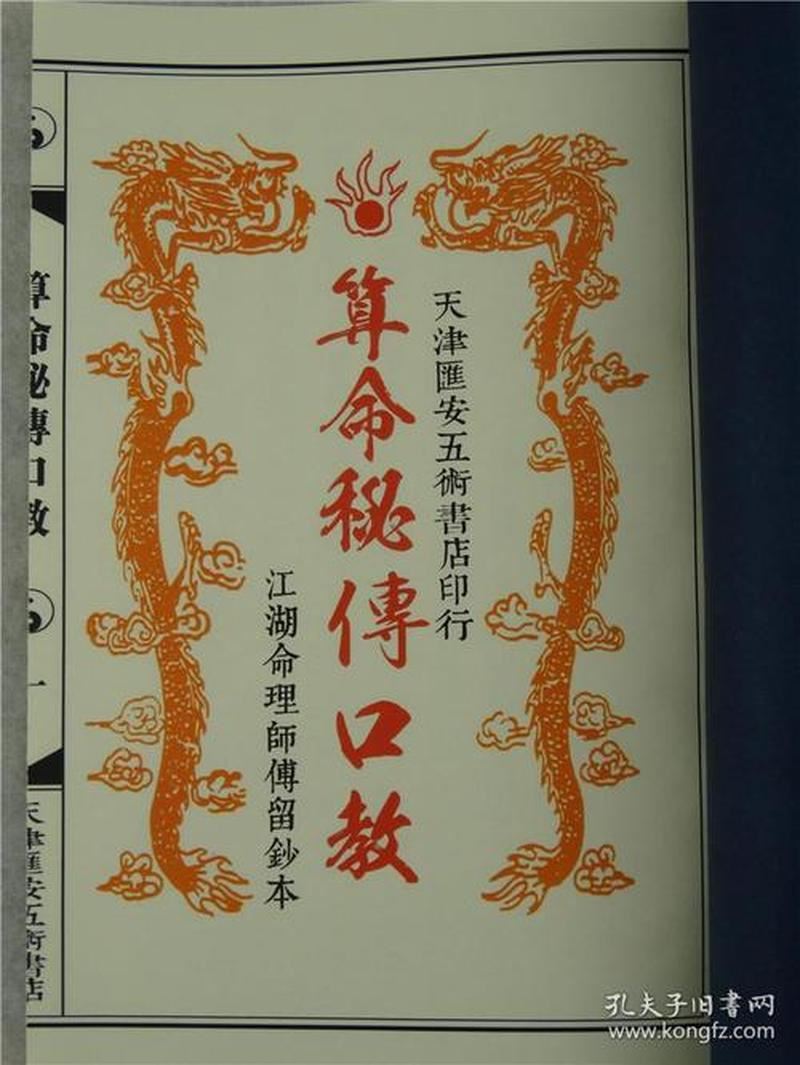 天津匯安五術書店印行
算命秘傳口教
江湖命理師傅留鈔本
算命秘傳口教
一
天津匯安五術書店
孔夫子旧書网
www.kongfz.com